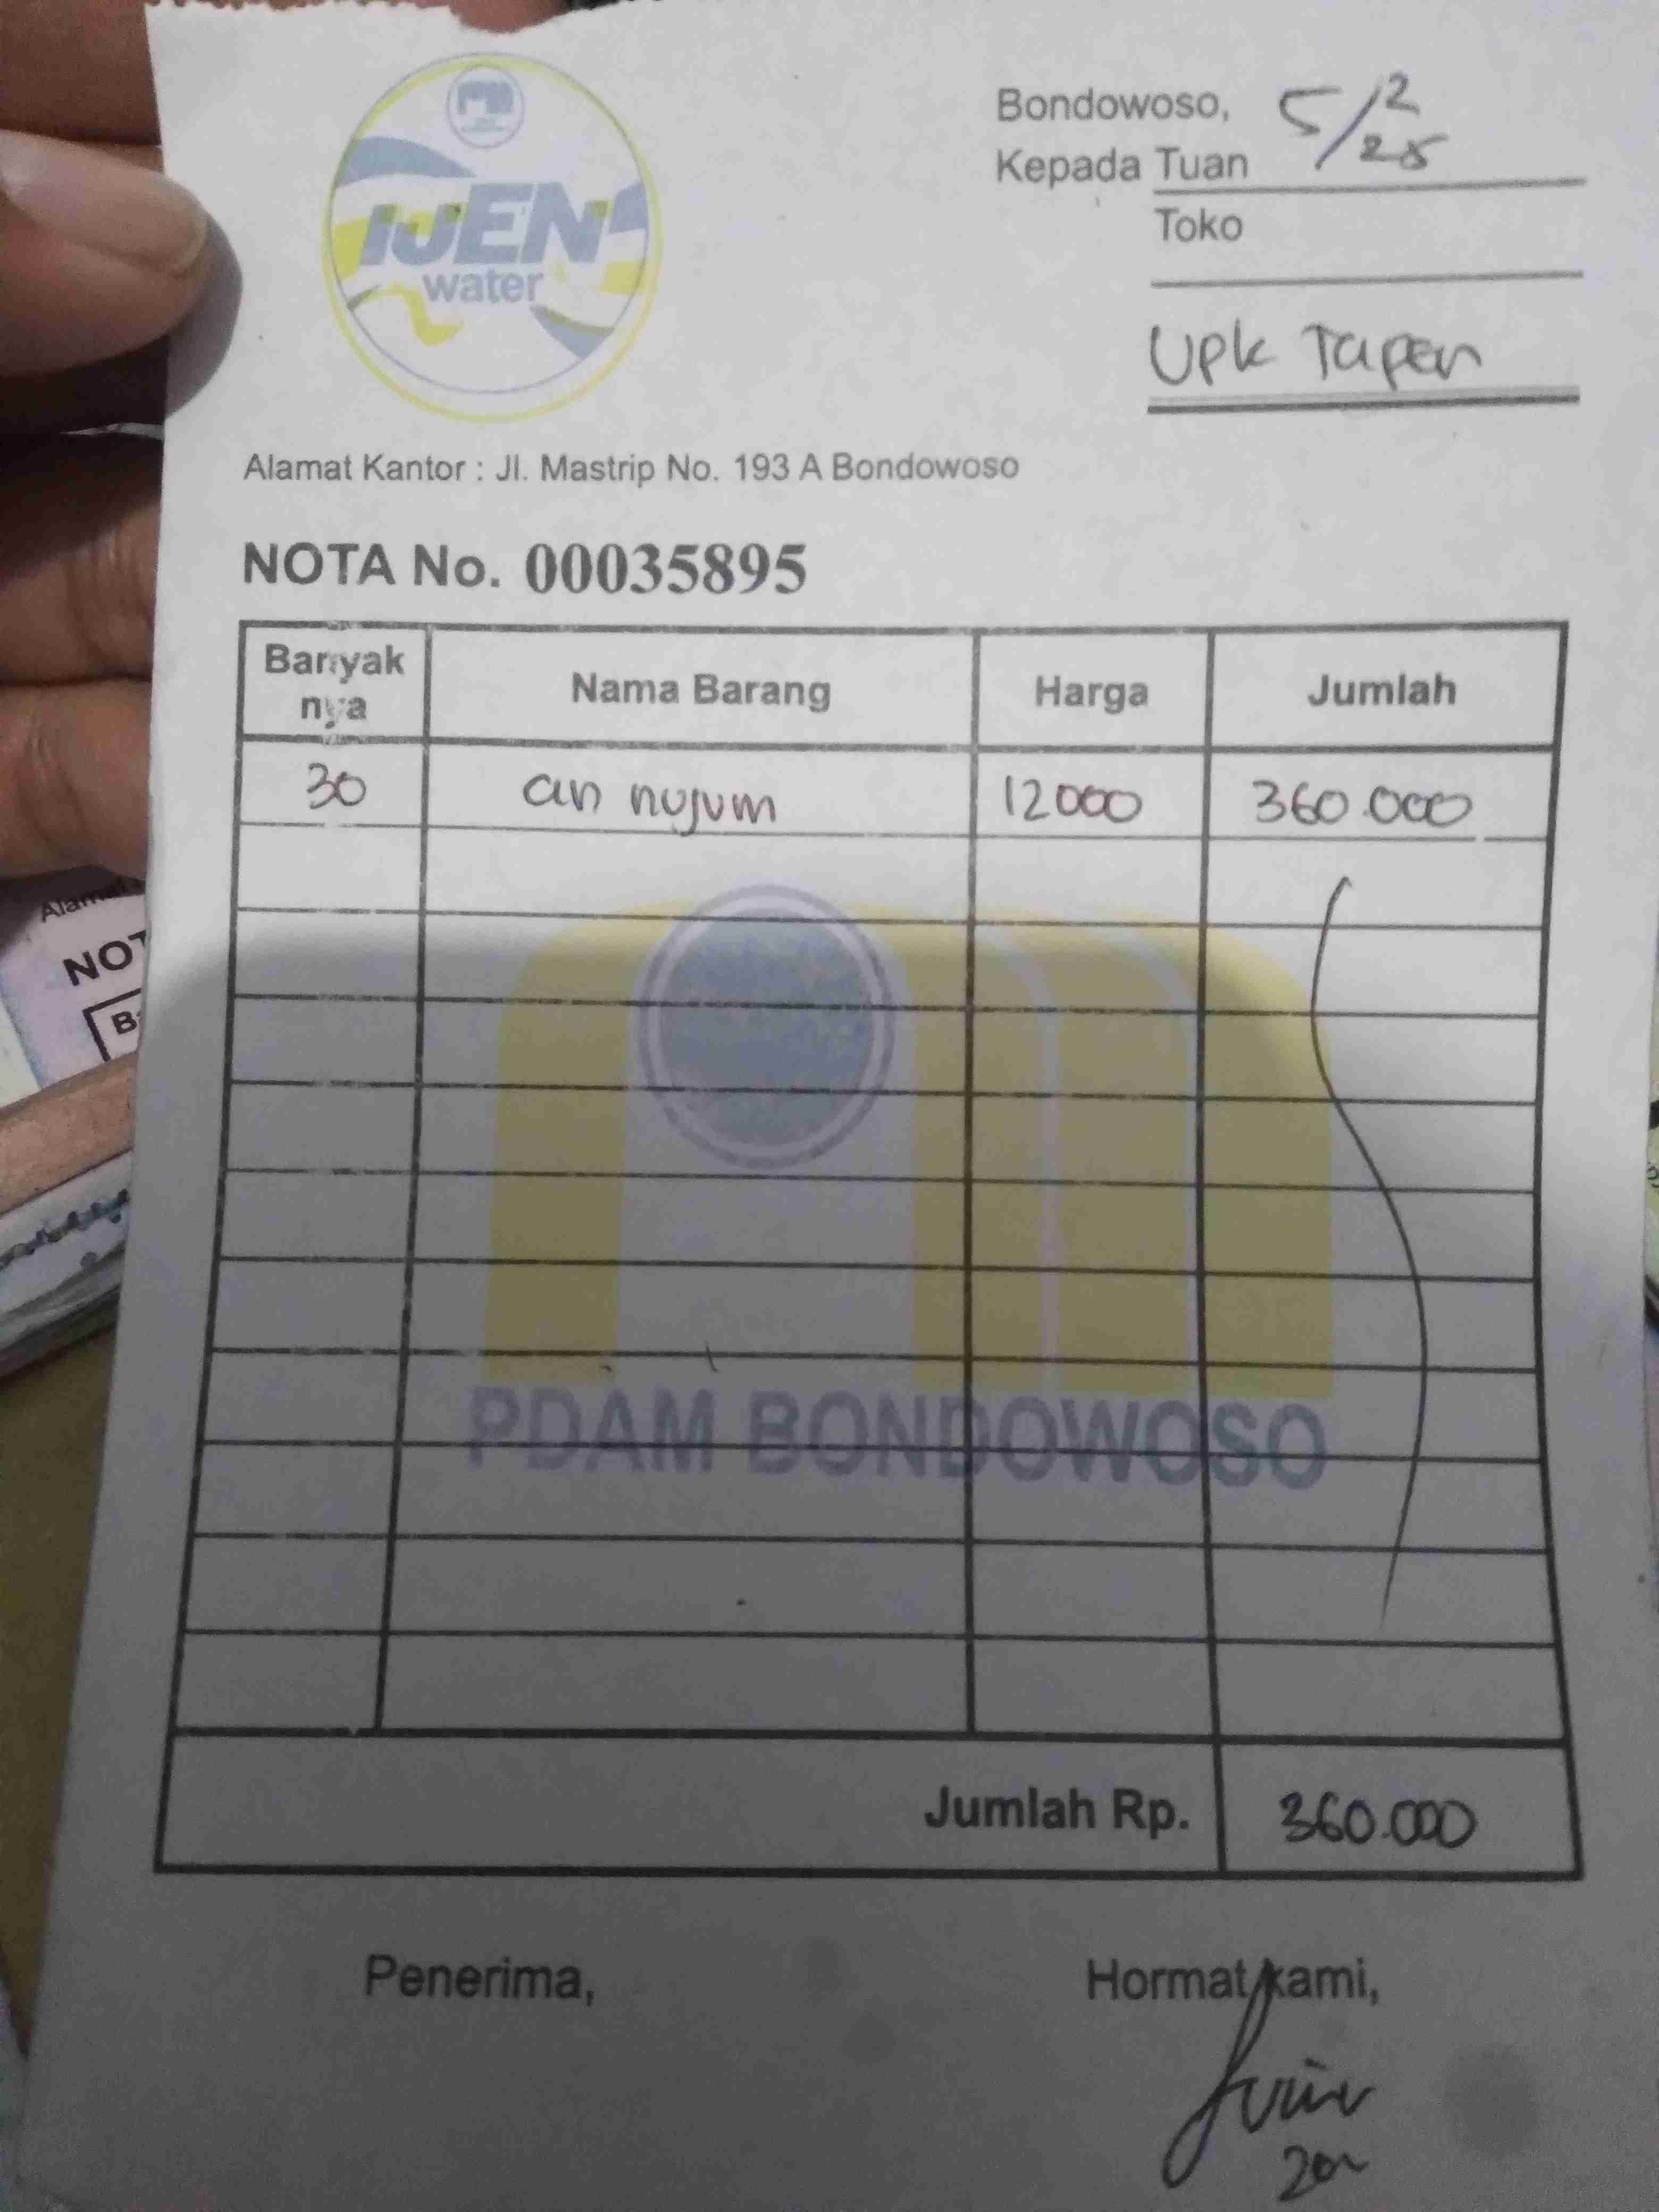 IJEN
water
Bondowoso, 5/2 25
Kepada Tuan
Toko
Upk Tapen
Alamat Kantor : Jl. Mastrip No. 193 A Bondowoso
NOTA No. 00035895
Banyak nya Nama Barang Harga Jumlah
30 an nujum 12000 360.000
PDAM BONDOWOSO
Jumlah Rp. 360.000
Penerima, Hormat kami,
Alamat
NOT